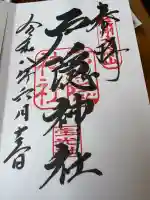 奉拝
戸隠神社
令和年六月十三日